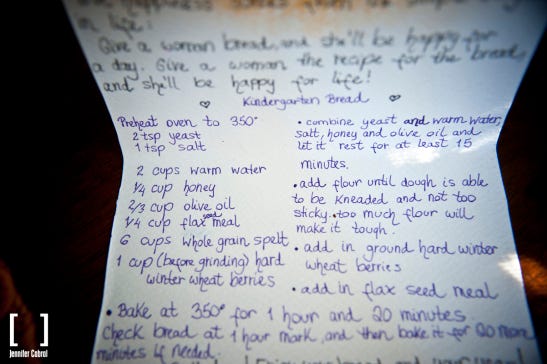 in life:
Give a woman bread, and she'll be happy for
a day. Give a woman the recipe for the bread,
and she'll be happy for life!
Kindergarten Bread
Preheat oven to 350°
2 tsp yeast
1 tsp salt
2 cups warm water
1/4 cup honey
2/3 cup olive oil
1/4 cup flax seed meal
6 cups whole grain spelt
1 cup (before grinding) hard
winter wheat berries
• combine yeast and warm water,
salt, honey and olive oil and
let it rest for at least 15
minutes.
• add flour until dough is able
to be kneaded and not too
sticky. too much flour will
make it tough.
• add in ground hard winter
wheat berries
• add in flax seed meal
• Bake at 350° for 1 hour and 20 minutes.
Check bread at 1 hour mark, and then bake it for 20 more
minutes if needed.
[ ]
Jennifer Cabral